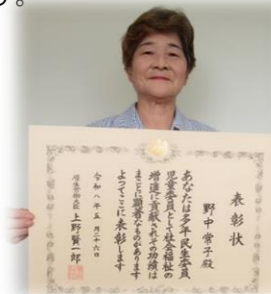 表彰状
野中常子殿
あなたは多年民生委員
児童委員として社会福祉の
増進に貢献されその功績は
まことに顕著なものがあります
よってここに表彰します
令和八年五月二十六日
厚生労働大臣 上野賢一郎